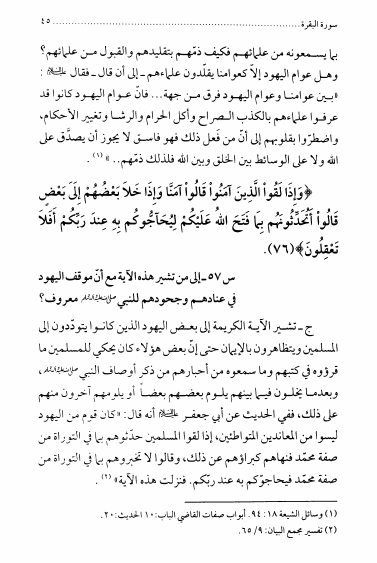 سورة البقرة ............ ٤٥
بما يسمعونه من علمائهم فكيف ذمّهم بتقليدهم والقبول من علمائهم؟
وهل عوام اليهود إلاّ كعوامنا يقلّدون علماءهم ــ إلى أن قال ــ فقال عليه السلام :
«بين عوامنا وعوام اليهود فرق من جهة... فانّ عوام اليهود كانوا قد
عرفوا علماءهم بالكذب الصراح وأكل الحرام والرشا وتغيير الأحكام،
واضطرّوا بقلوبهم إلى أنّ من فَعل ذلك فهو فاسق لا يجوز أن يصدَّق على
الله ولا على الوسائط بين الخلق وبين الله فلذلك ذمّهم.. » (١).
﴿وَإِذَا لَقُواْ الَّذِينَ آمَنُواْ قَالُواْ آمَنَّا وَإِذَا خَلاَ بَعْضُهُمْ إِلَىَ بَعْضٍ
قَالُواْ أَتُحَدِّثُونَهُم بِمَا فَتَحَ اللهُ عَلَيْكُمْ لِيُحَآجُّوكُم بِهِ عِندَ رَبِّكُمْ أَفَلاَ
تَعْقِلُونَ﴾(٧٦).
س ٥٧ ــ إلى من تشير هذه الآية مع أنّ موقف اليهود
في عنادهم وجحودهم للنبي صلى الله عليه وآله وسلم معروف؟
ج ــ تشير الآية الكريمة إلى بعض اليهود الذين كانوا يتودّدون إلى
المسلمين ويتظاهرون بالإيمان حتى إنّ بعض هؤلاء كان يحكي للمسلمين ما
قرؤوه في كتبهم وما سمعوه من أحبارهم من ذكر أوصاف النبي صلى الله عليه وآله وسلم،
وبعدما يخلون فيما بينهم يلوم بعضهم بعضاً أو يلومهم آخرون منهم
على ذلك، ففي الحديث عن أبي جعفر عليه السلام أنه قال: «كان قوم من اليهود
ليسوا من المعاندين المتواطئين، إذا لقوا المسلمين حدّثوهم بما في التوراة من
صفة محمّد فنهاهم كبراؤهم عن ذلك، وقالوا لا تخبروهم بما في التوراة من
صفة محمّد فيحاجوكم به عند ربّكم. فنزلت هذه الآية» (٢).
(١) وسائل الشيعة ١٨: ٩٤. أبواب صفات القاضي الباب: ١٠ الحديث: ٢٠.
(٢) تفسير مجمع البيان: ٩/ ٦٥.